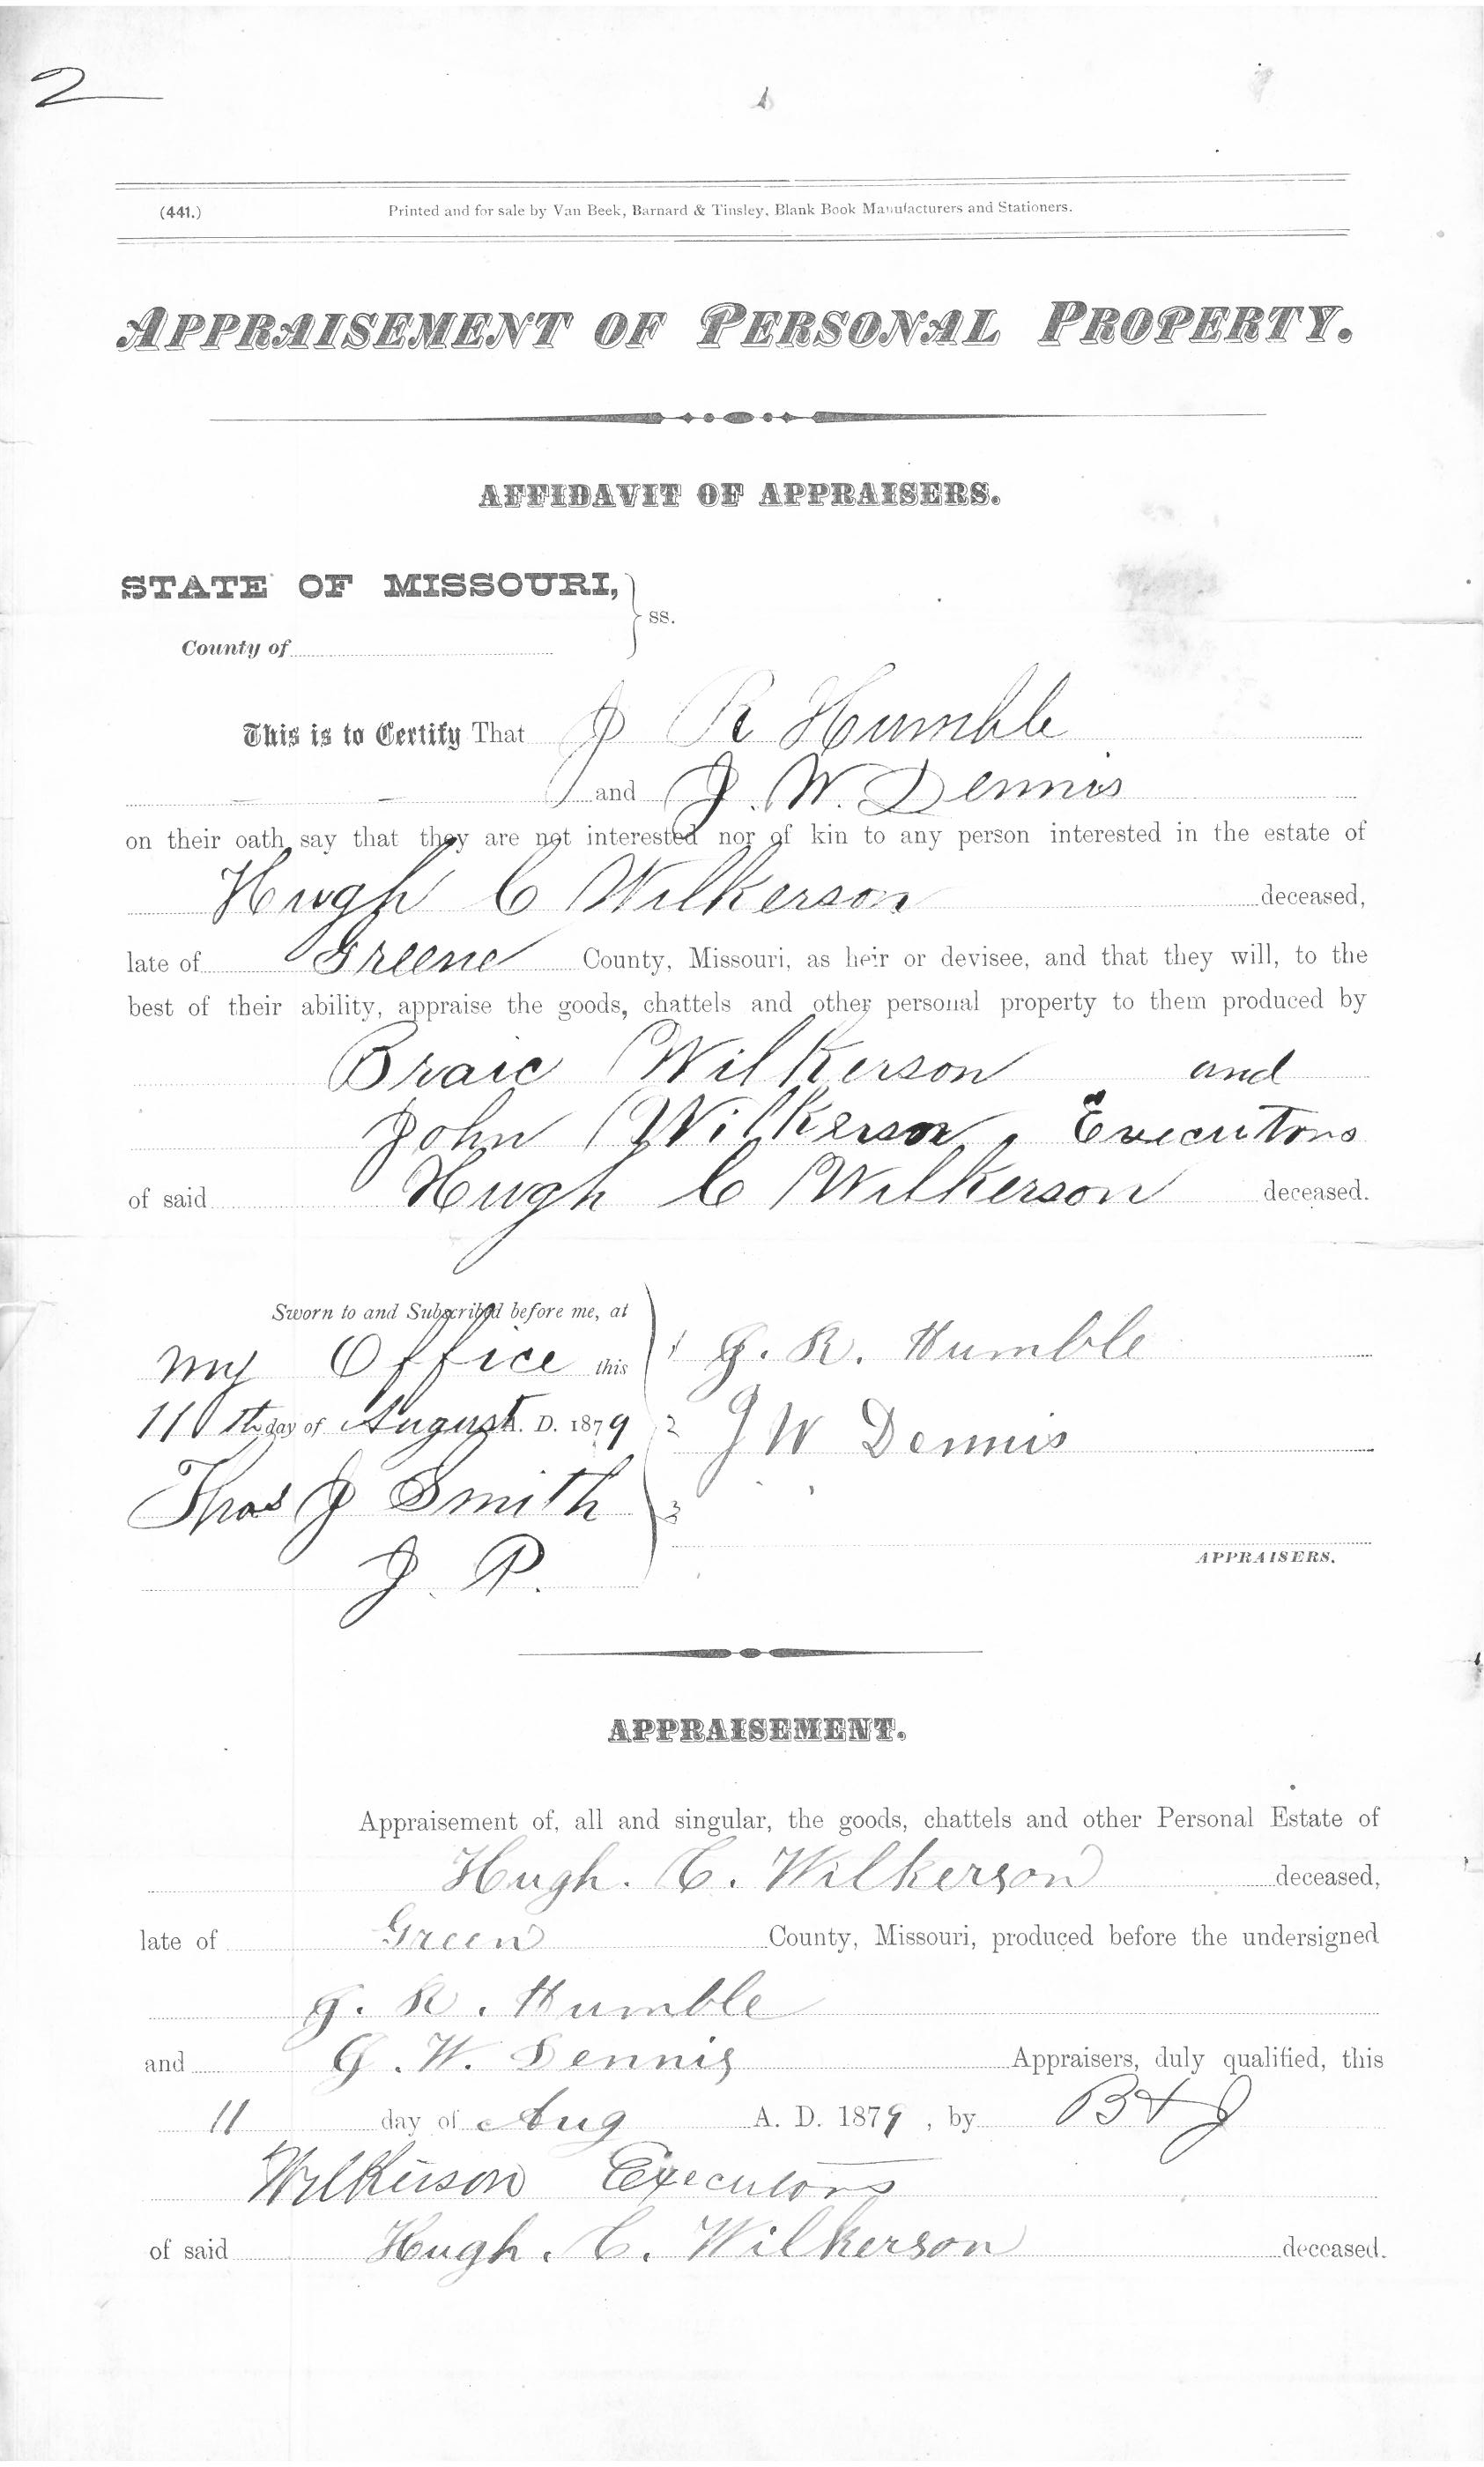 2
(441.) Printed and for sale by Van Beek, Barnard & Tinsley, Blank Book Manufacturers and Stationers.
APPRAISEMENT OF PERSONAL PROPERTY.
AFFIDAVIT OF APPRAISERS.
STATE OF MISSOURI,
ss.
County of
This is to Certify That J R Humble
and J. W. Dennis
on their oath say that they are not interested nor of kin to any person interested in the estate of
Hugh C Wilkerson deceased,
late of Greene County, Missouri, as heir or devisee, and that they will, to the
best of their ability, appraise the goods, chattels and other personal property to them produced by
Braic Wilkerson and
John Wilkerson, Executors
of said Hugh C Wilkerson deceased.
Sworn to and Subscribed before me, at
my Office this
11th day of August A. D. 1879
Thos J Smith
J. P.
1 J. R. Humble
2 J W Dennis
3
APPRAISERS.
APPRAISEMENT.
Appraisement of, all and singular, the goods, chattels and other Personal Estate of
Hugh. C. Wilkerson deceased,
late of Green County, Missouri, produced before the undersigned
J. R. Humble
and J. W. Dennis Appraisers, duly qualified, this
11 day of Aug A. D. 1879, by B & J
Wilkerson Executors
of said Hugh. C. Wilkerson deceased.